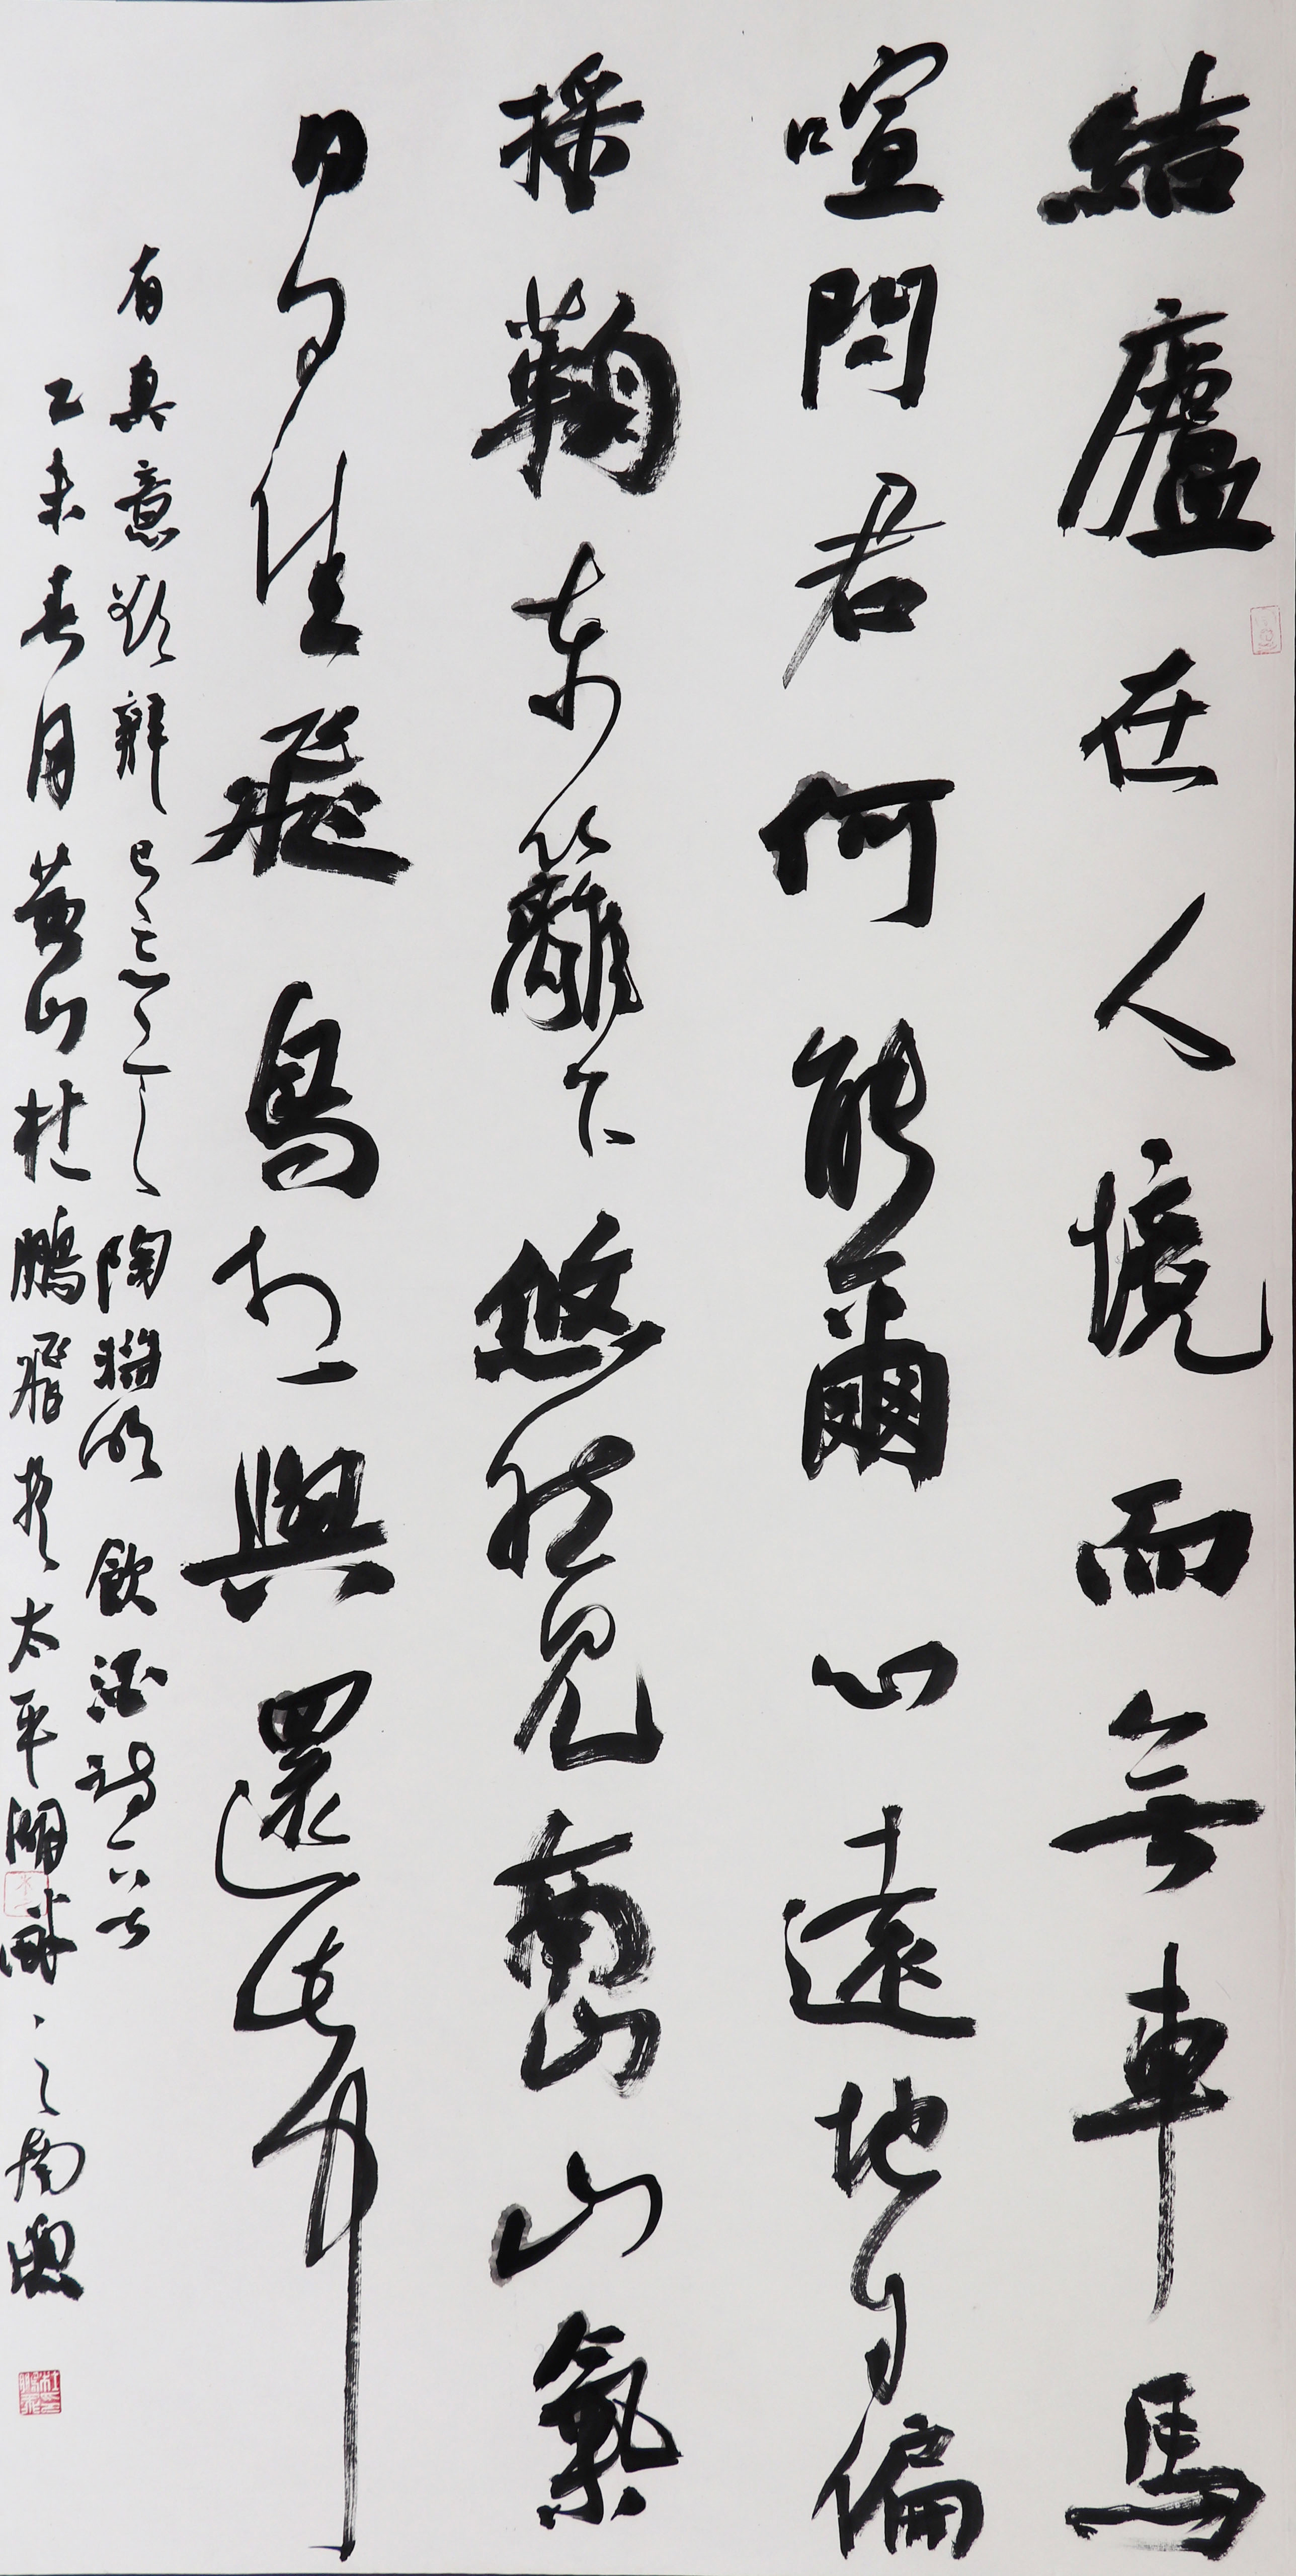 結廬在人境而無車馬
喧問君何能爾心遠地自偏
採鞠東籬下悠然見南山山氣
日夕佳飛鳥相與還此中
有真意欲辯已忘言陶淵明飲酒詩
乙未春月黃山杜鵬飛於太平湖畔之南